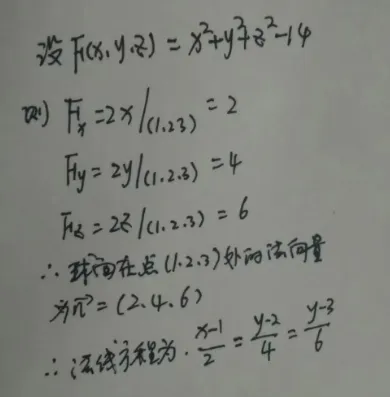 设 F(x,y,z) = x²+y²+z²-14
则 Fx = 2x|(1.2.3) = 2
Fy = 2y|(1.2.3) = 4
Fz = 2z|(1.2.3) = 6
∴ 球面在点(1.2.3)处的法向量
为n⃗ = (2.4.6)
∴ 法线方程为. (x-1)/2 = (y-2)/4 = (y-3)/6